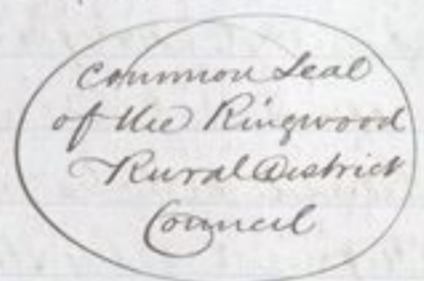 Common Seal
of the Ringwood
Rural District
Council